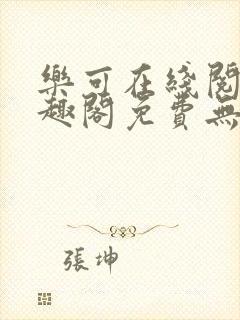 樂可在綫閱
趣閣免費無
張坤